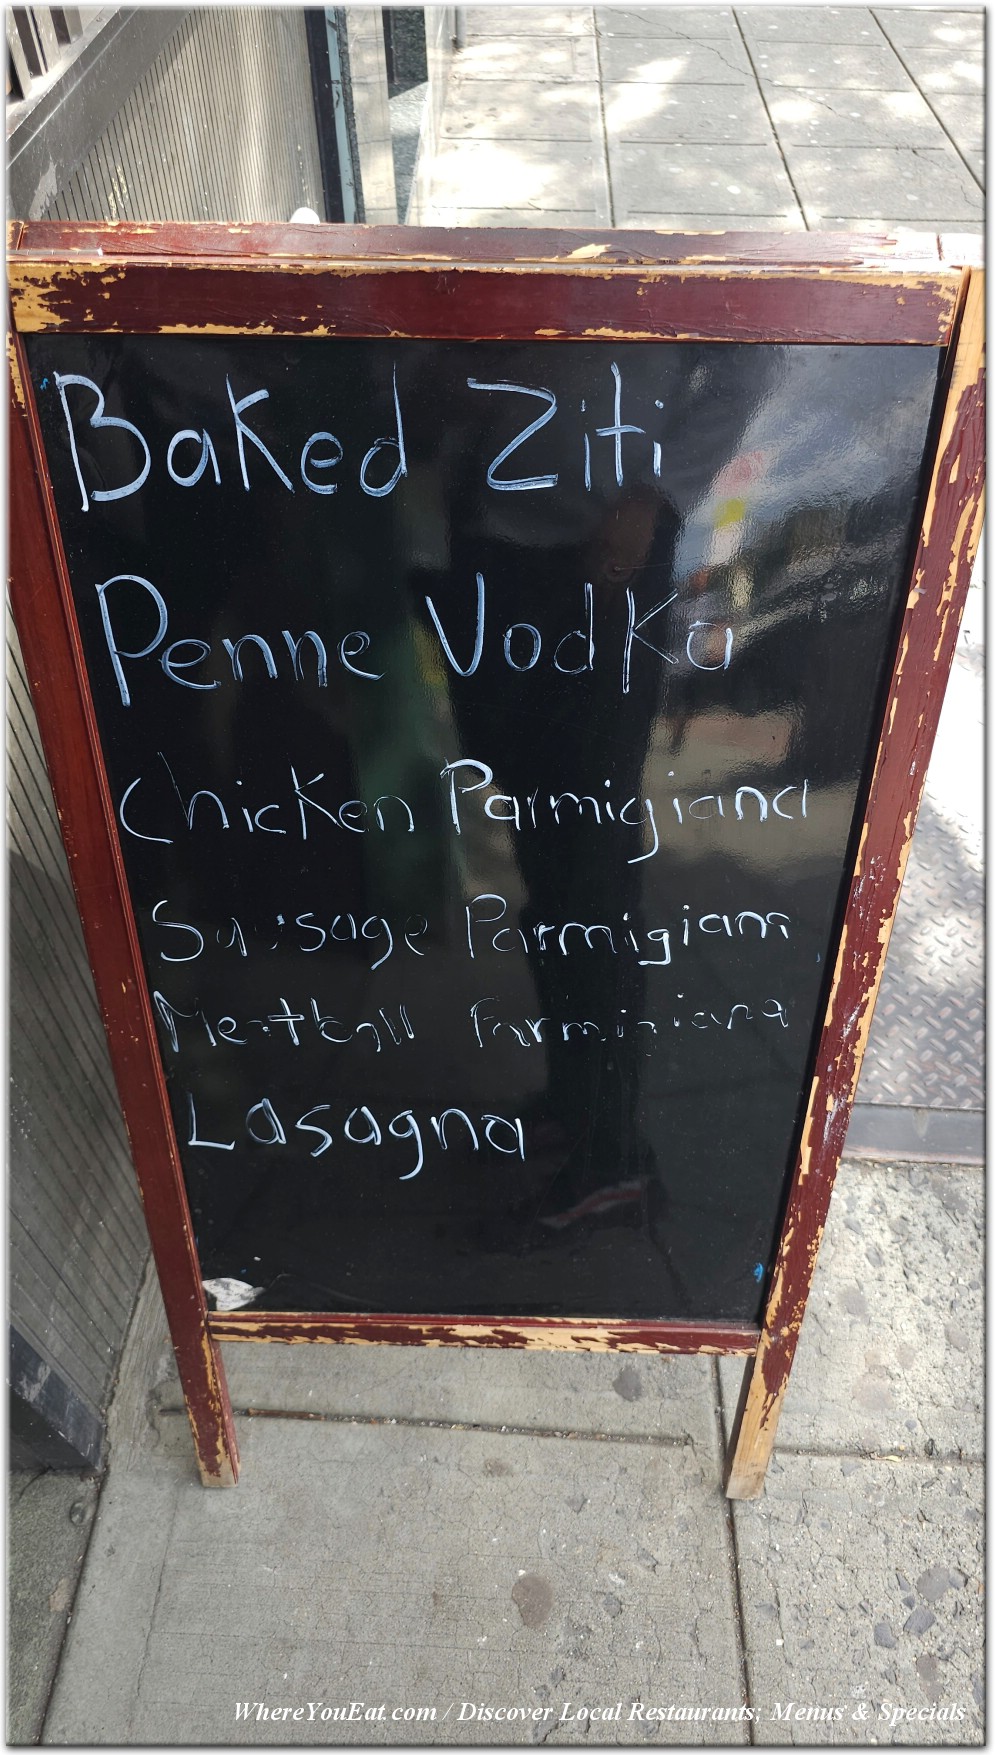 Baked Ziti
Penne Vodka
Chicken Parmigiana
Sausage Parmigiana
Meatball Parmigiana
Lasagna
WhereYouEat.com / Discover Local Restaurants; Menus & Specials